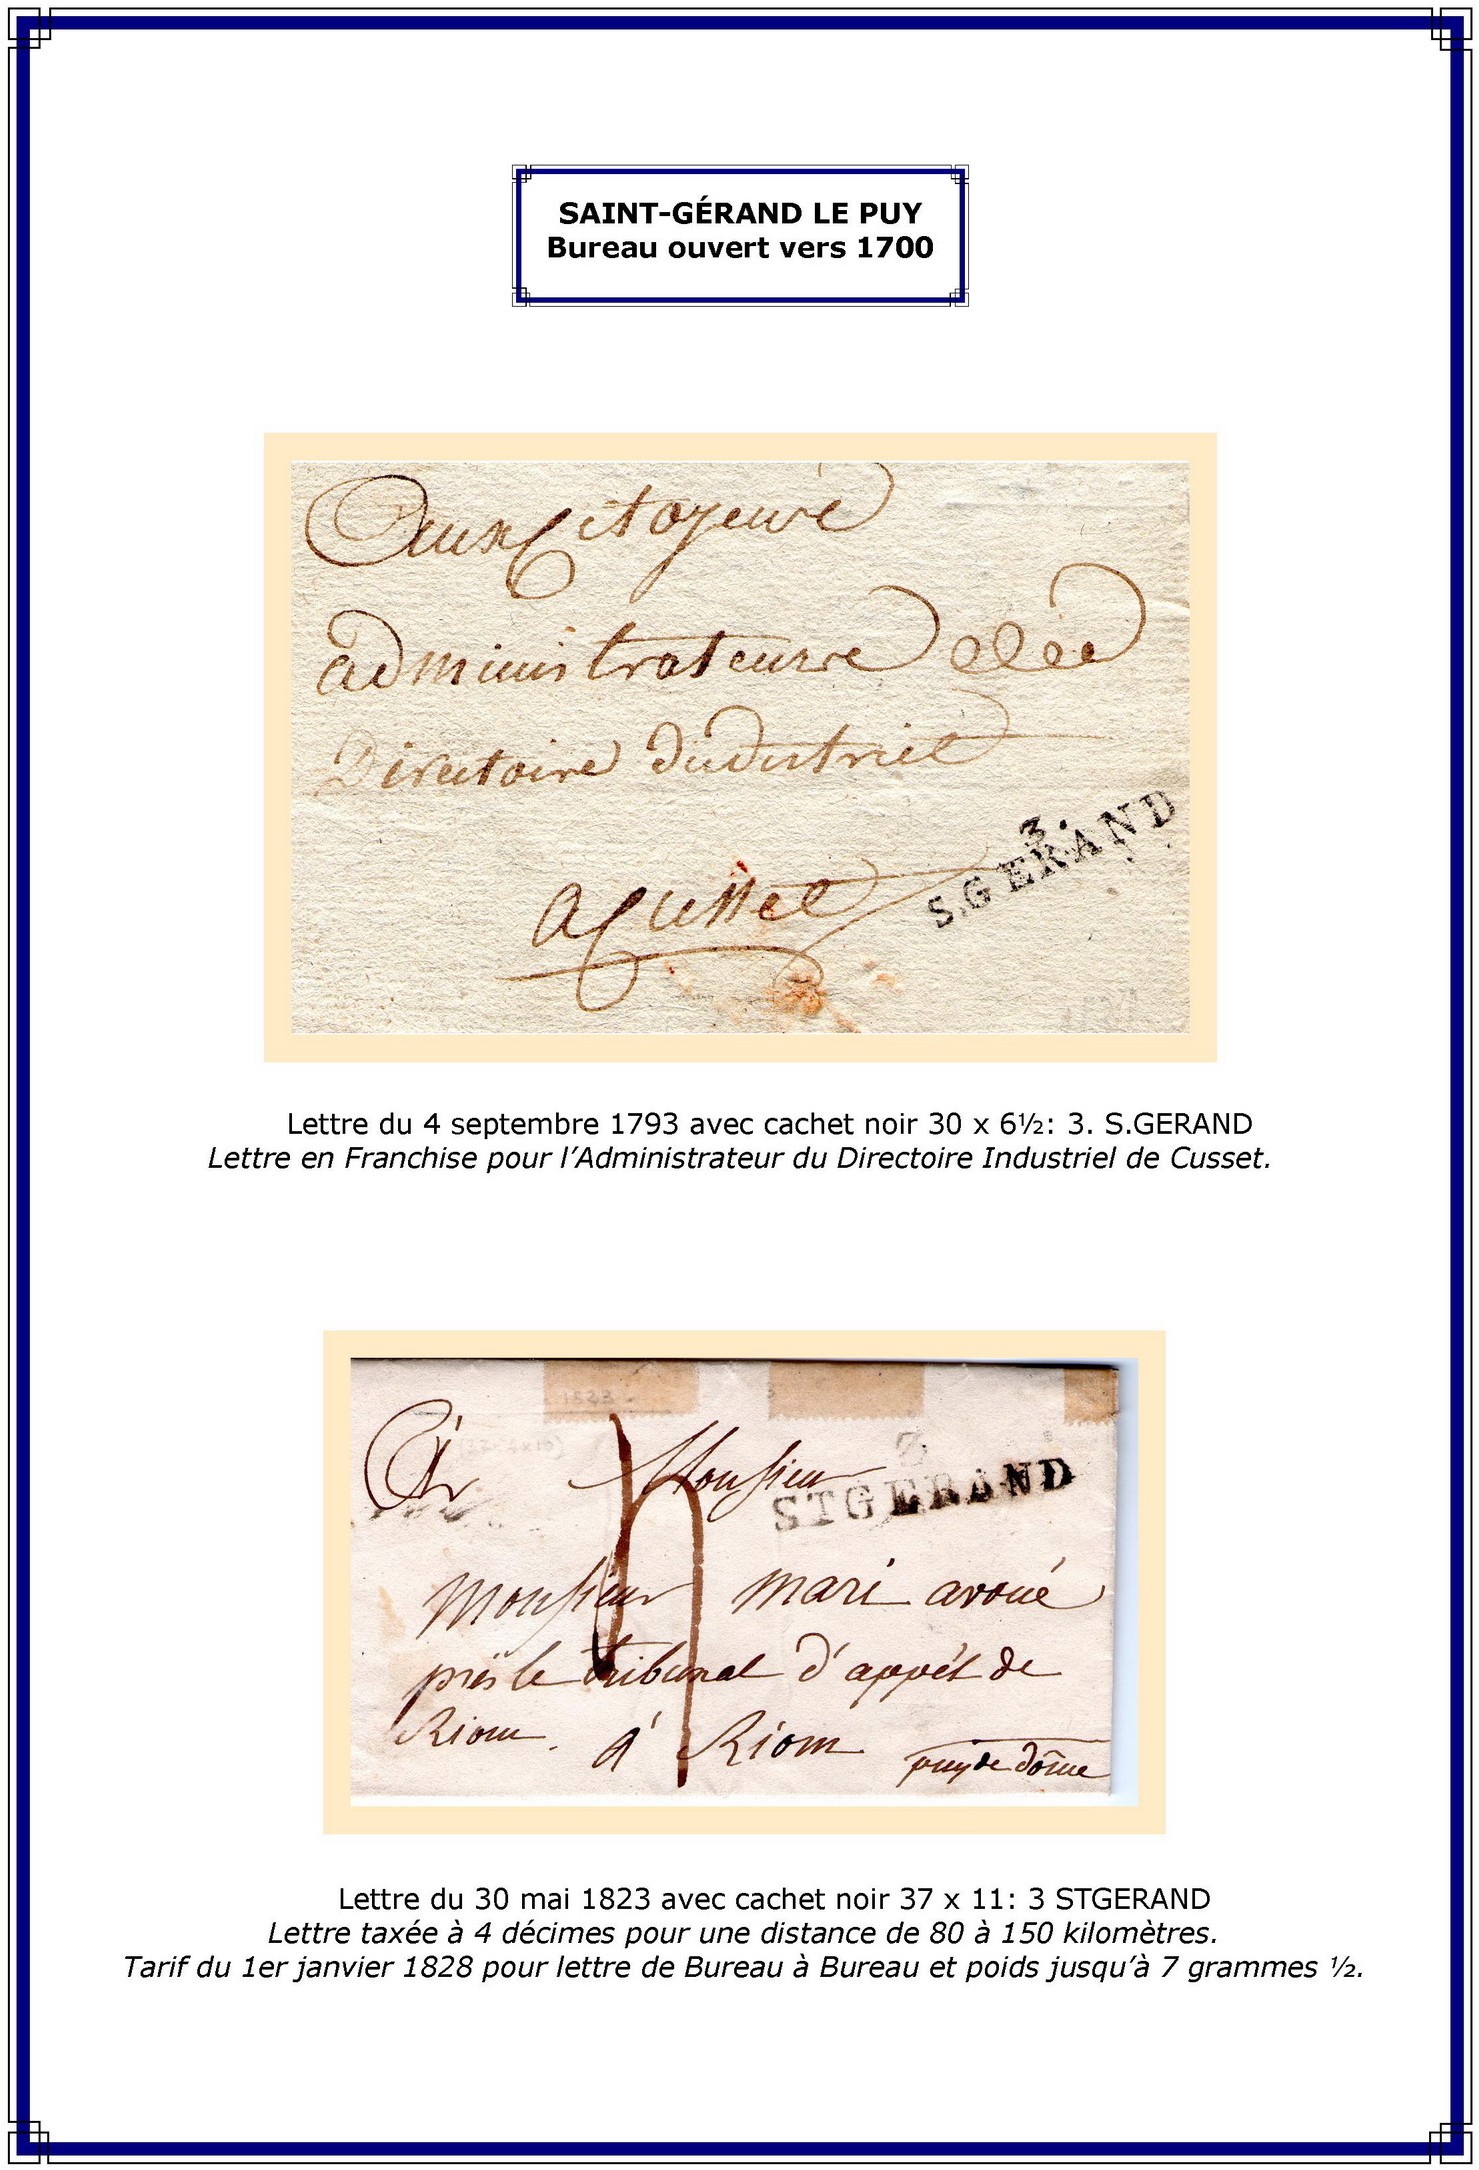 SAINT-GÉRAND LE PUY
Bureau ouvert vers 1700
Aux Citoyens
administrateurs des
Directoire du district
3.
S.GERAND
a Cusset
Lettre du 4 septembre 1793 avec cachet noir 30 x 6½: 3. S.GERAND
Lettre en Franchise pour l’Administrateur du Directoire Industriel de Cusset.
1823
A Monsieur
3
STGERAND
Monsieur mari avoué
près le tribunal d'appél de
Riom. à Riom
puy de dôme
Lettre du 30 mai 1823 avec cachet noir 37 x 11: 3 STGERAND
Lettre taxée à 4 décimes pour une distance de 80 à 150 kilomètres.
Tarif du 1er janvier 1828 pour lettre de Bureau à Bureau et poids jusqu’à 7 grammes ½.